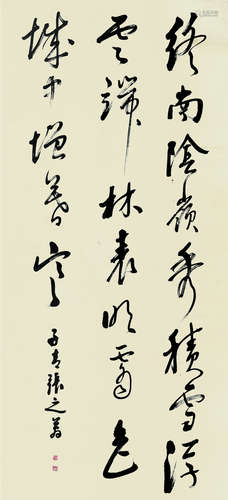 終南陰嶺秀積雪浮
雲端林表明霽色
城中增暮寒
子青張之萬